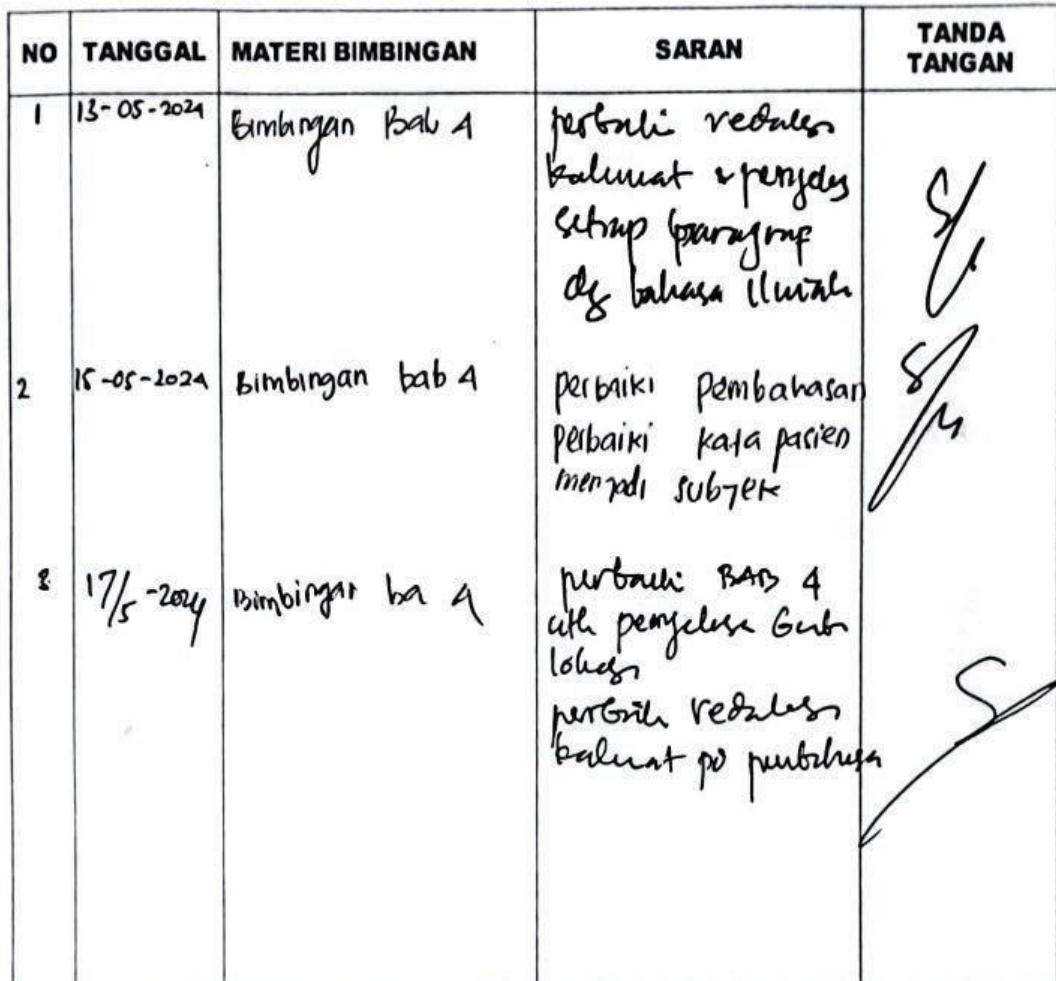 NO TANGGAL MATERI BIMBINGAN SARAN TANDA TANGAN
1 13-05-2024 Bimbingan Bab 4 perbaiki redaksi
kalimat &
setiap paragraf
dg bahasa ilmiah
2 15-05-2024 Bimbingan bab 4 perbaiki pembahasan
perbaiki kata pasien
menjadi subjek
3 17/5-2024 Bimbingan ba 4 perbaiki BAB 4
lokasi
perbaiki redaksi
kalimat